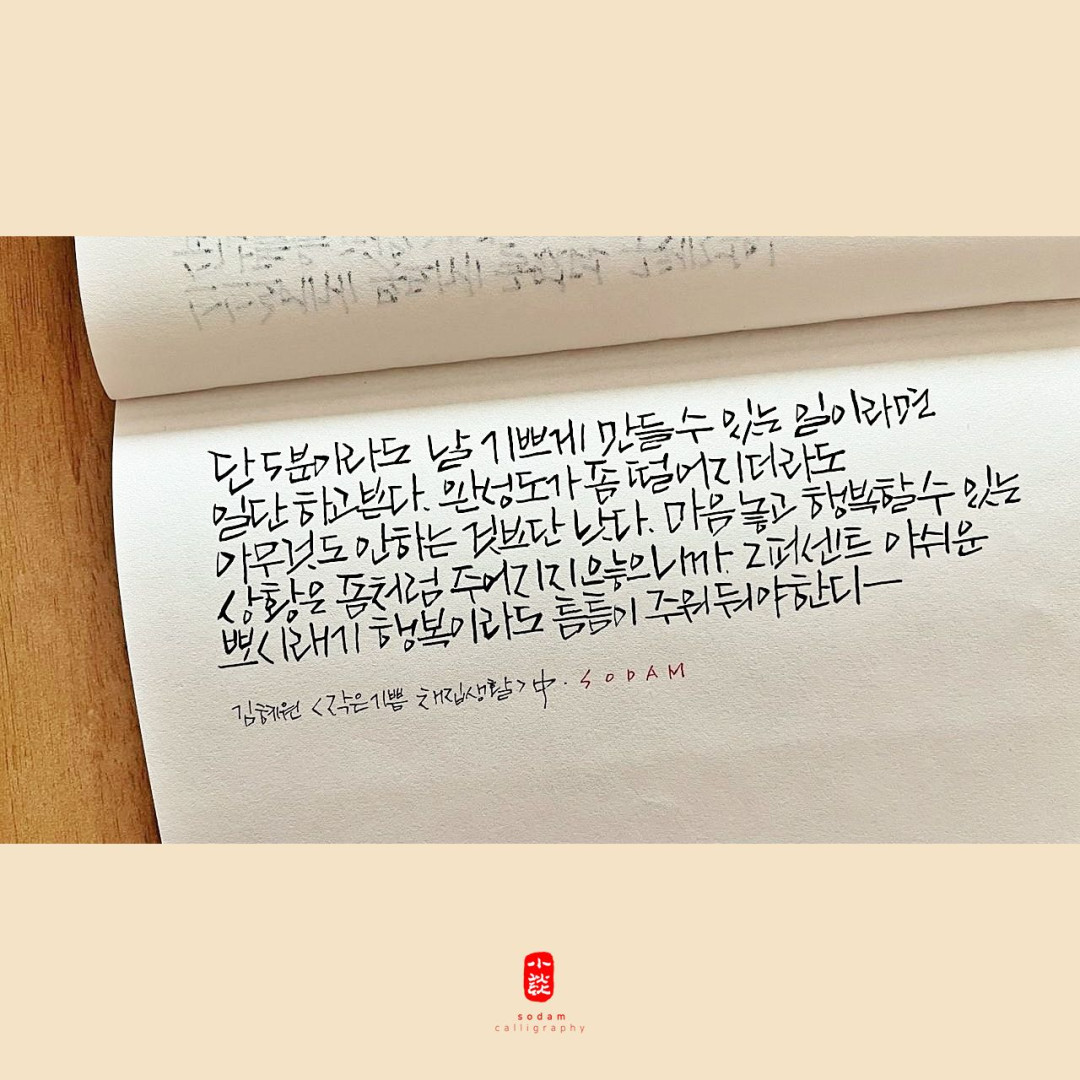 단 5분이라도 날 기쁘게 만들 수 있는 일이라면
일단 하고본다. 완성도가 좀 떨어지더라도
아무것도 안하는 것보단 낫다. 마음 놓고 행복할 수 있는
상황은 좀처럼 주어지지 않으니까. 2퍼센트 아쉬운
뽀시래기 행복이라도 틈틈이 주워 둬야한다—
김혜원 <작은 기쁨 채집생활> 中. SODAM
小談
sodam
calligraphy